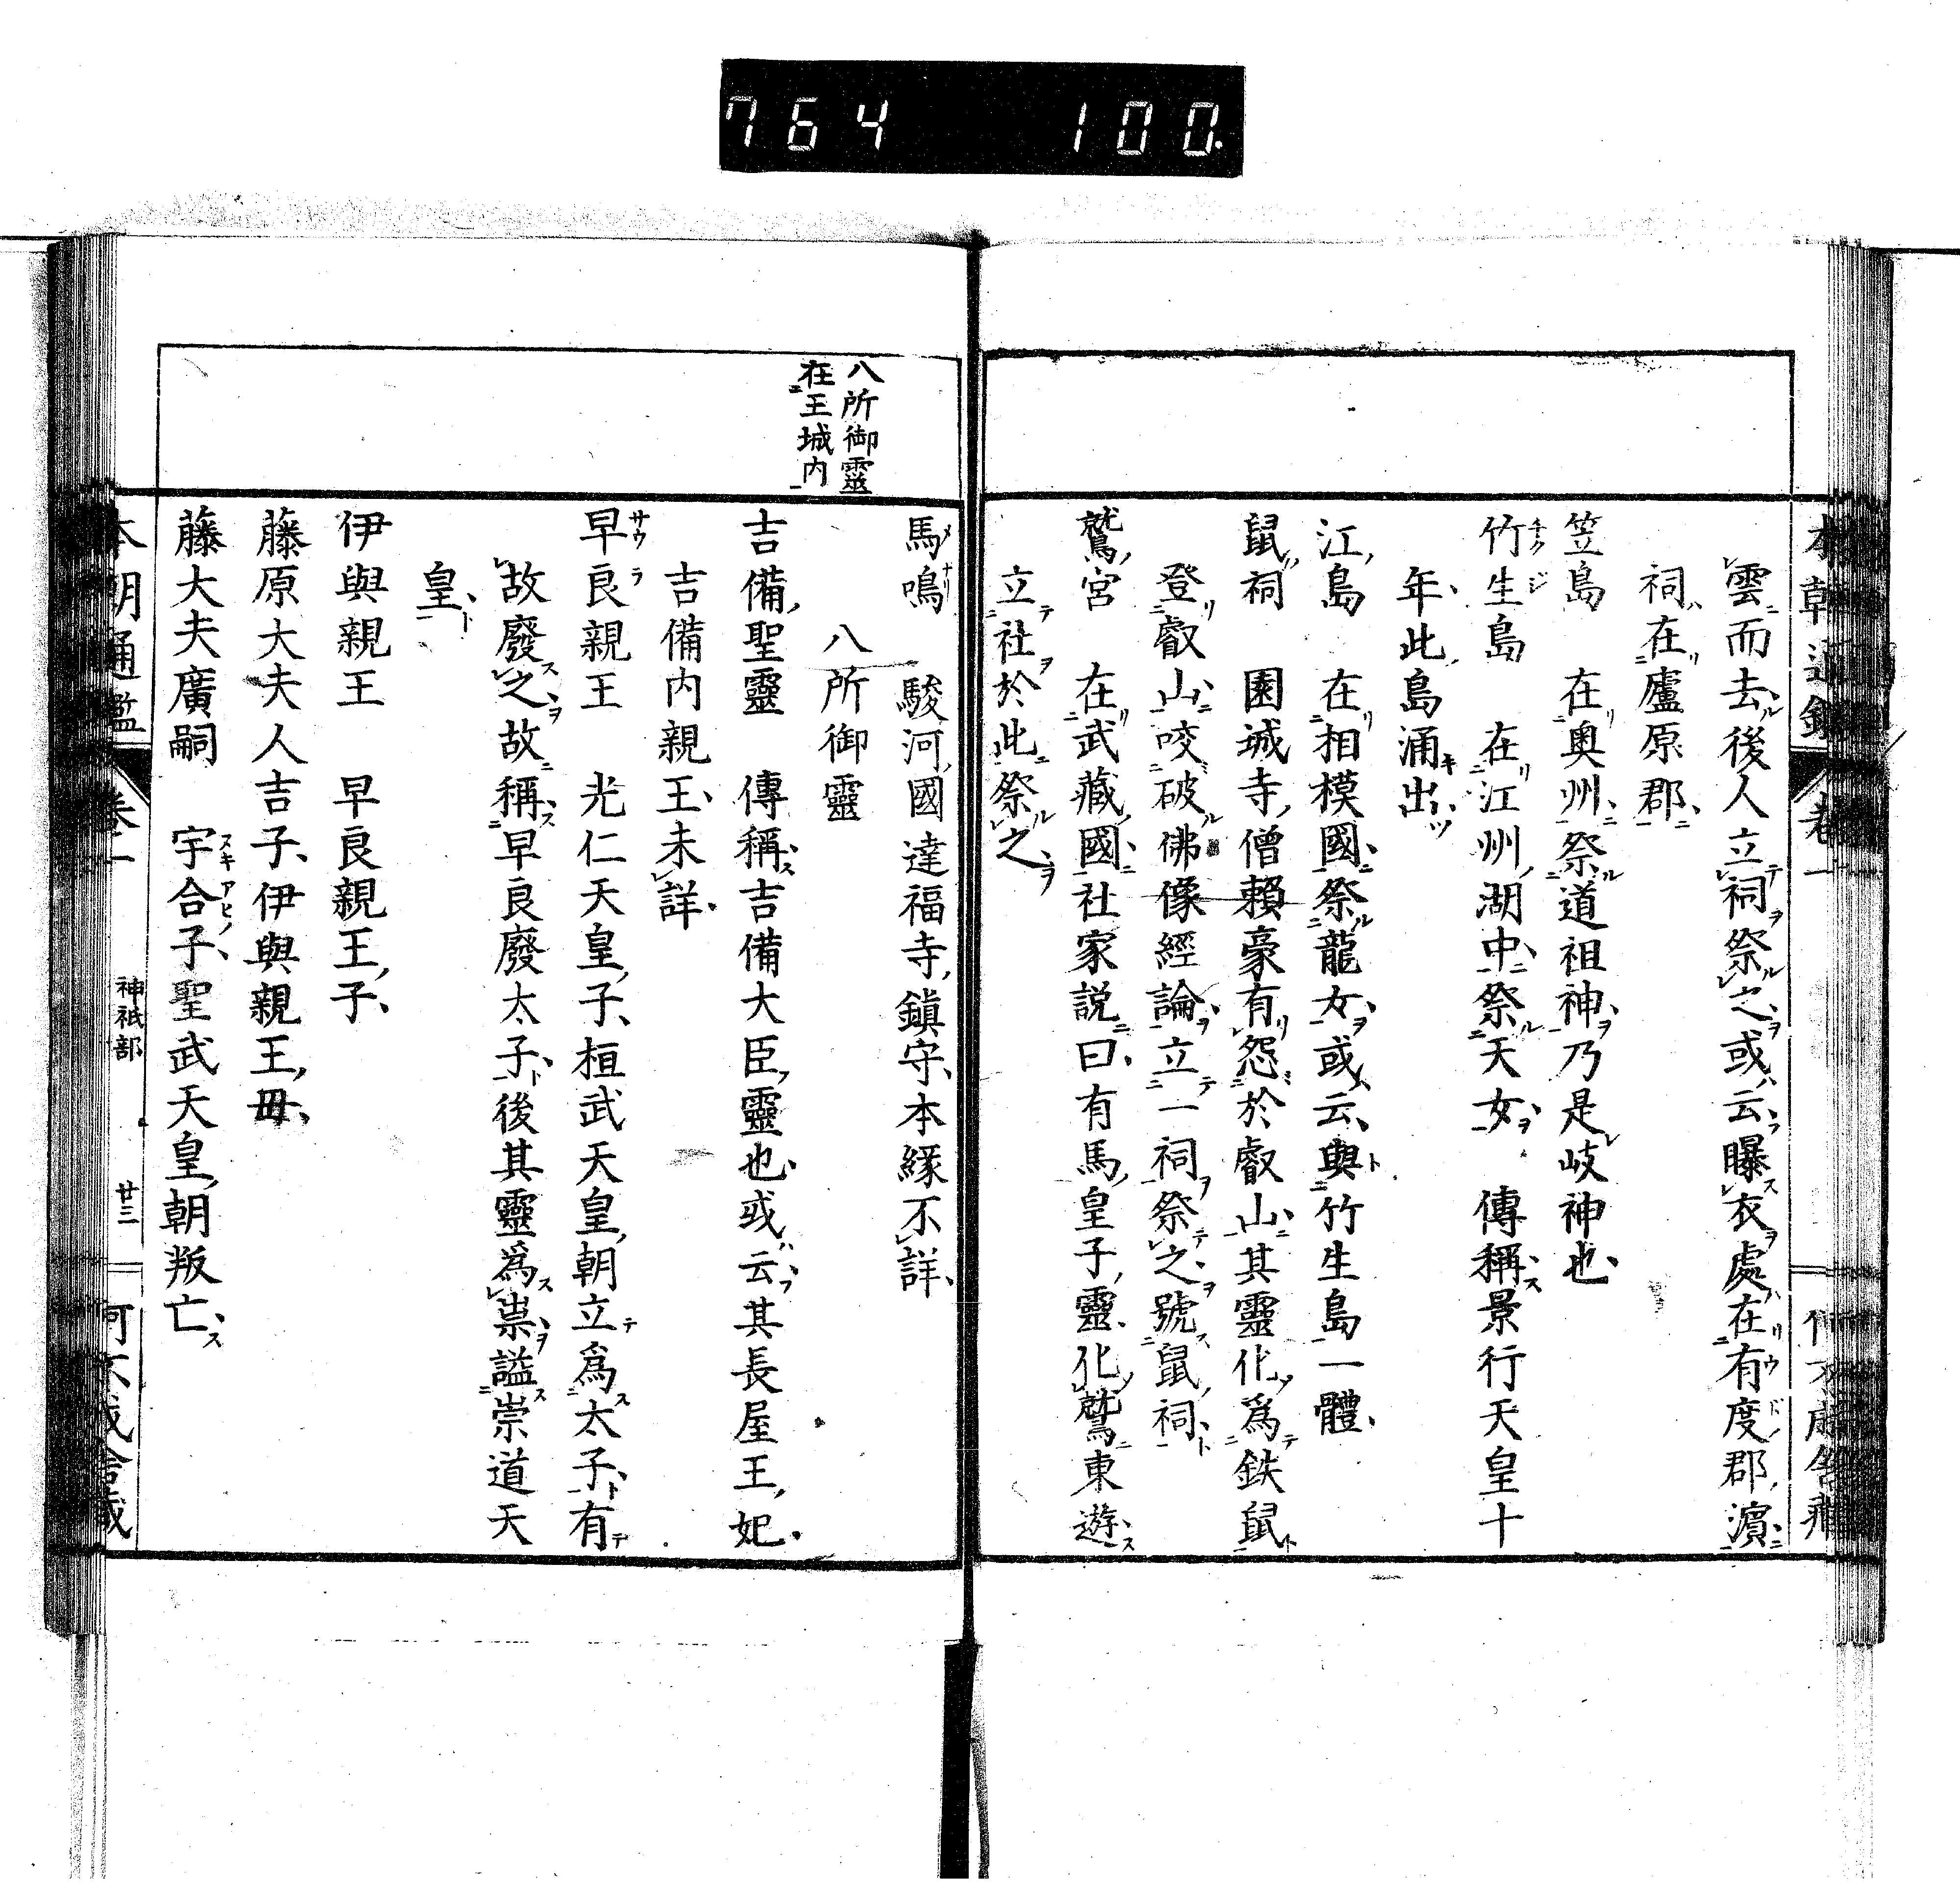 764 100.
雲而去後人立祠祭之或云曝衣處在有度郡濵
祠在廬原郡
笠島 在奥州祭道祖神乃是岐神也
竹生島 在江州湖中祭天女 傳稱景行天皇十
年此島涌出
江島 在相模國祭龍女或云與竹生島一體
鼠祠 園城寺僧賴豪有怨於叡山其靈化爲鉄鼠
登叡山咬破佛像經論立一祠祭之號鼠祠
鷲宮 在武藏國社家説曰有馬皇子靈化鷲東遊
立社於此祭之
八所御靈
在王城内
馬鳴 駿河國達福寺鎮守本緣不詳
八所御靈
吉備聖靈 傳稱吉備大臣靈也或云其長屋王妃
吉備内親王未詳
早良親王 光仁天皇子桓武天皇朝立爲太子有
故廢之故稱早良廢太子後其靈爲祟謚崇道天
皇
伊與親王 早良親王子
藤原大夫人吉子伊與親王毋
藤大夫廣嗣 宇合子聖武天皇朝叛亡
本朝通鑑 卷一 神祇部 廿三